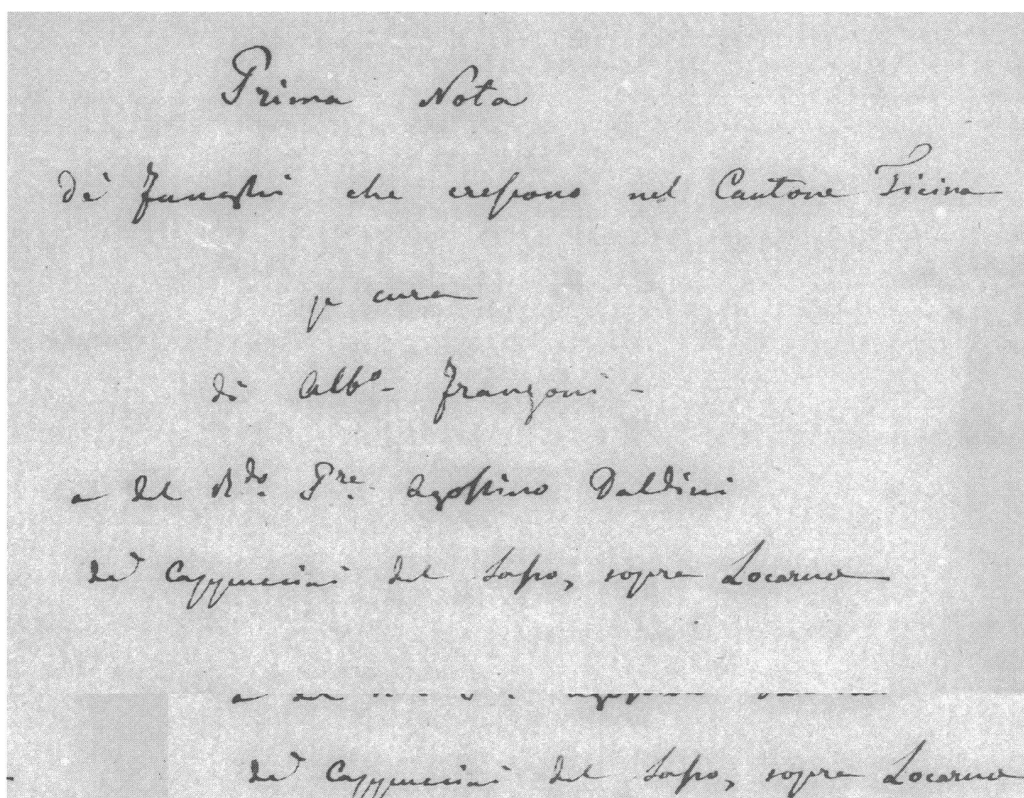 Prima Nota
de' Funghi che crescono nel Cantone Ticino
p cura
di Alb.o Franzoni -
e del R.do P.re Agostino Daldini
de' Cappuccini del Sasso, sopra Locarno
de' Cappuccini del Sasso, sopra Locarno